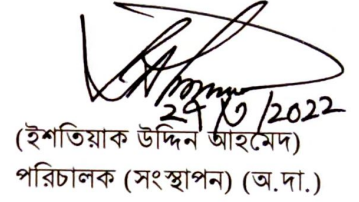 /2022
(ইশতিয়াক উদ্দিন আহমেদ)
পরিচালক (সংস্থাপন) (অ.দা.)